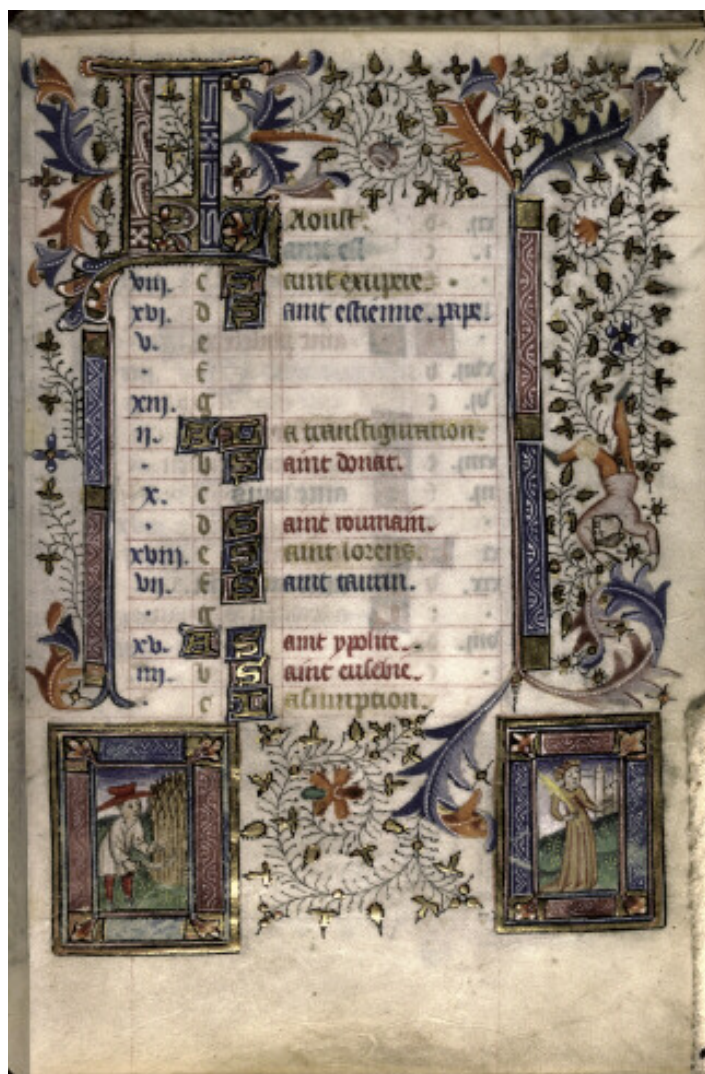 KL Aoust.
viij. c Saint exupere.
xvj. d Saint estienne. pape.
v. e
. f
xiij. g
ij. A La transfiguration.
. b Saint donat.
x. c
. d Saint roumain.
xviij. e Saint lorens.
vij. f Saint taurin.
. g
xv. A Saint ypolite.
iiij. b Saint eusebe.
. c